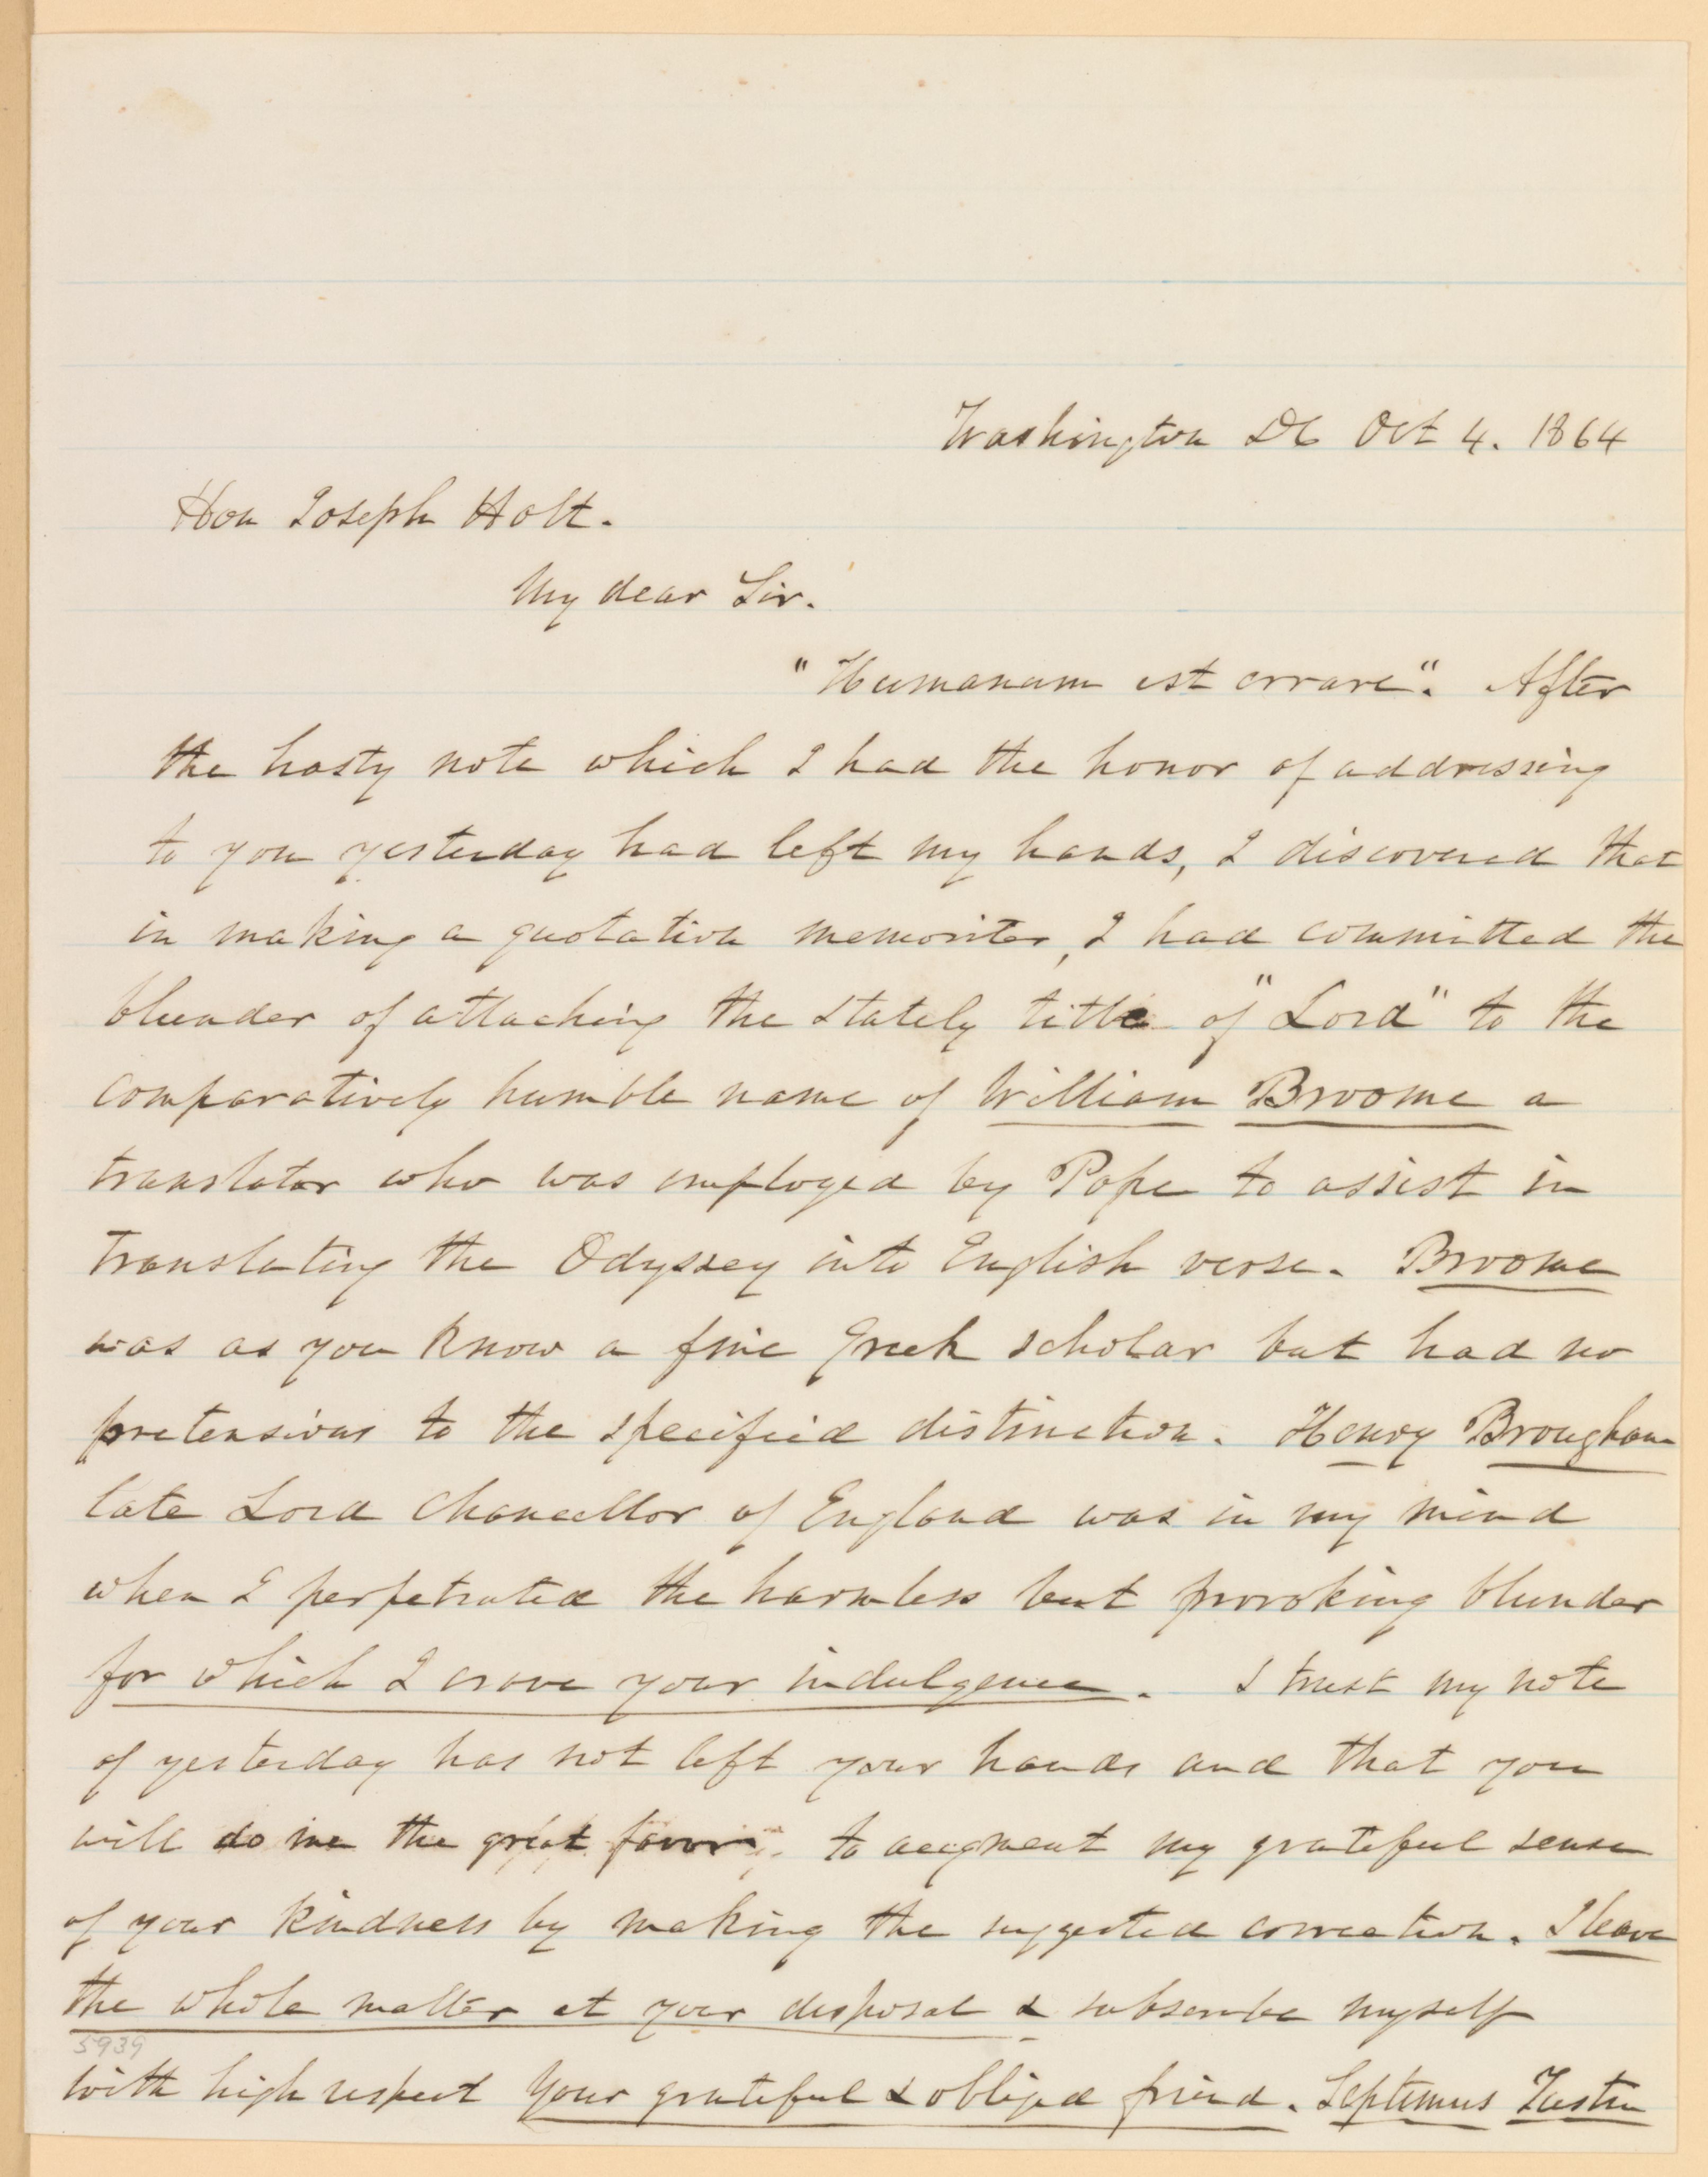 Washington DC Oct 4. 1864
Hon Joseph Holt.
My dear Sir.
"Humanum est errare". After
the hasty note which I had the honor of addressing
to you yesterday had left my hands, I discovered that
in making a quotation memoriter, I had committed the
blunder of attaching the stately title of "Lord" to the
comparatively humble name of William Broome a
translator who was employed by Pope to assist in
translating the Odyssey into English verse. Broome
was as you know a fine Greek scholar but had no
pretensions to the specified distinction. Henry Brougham
late Lord Chancellor of England was in my mind
when I perpetrated the harmless but provoking blunder
for which I crave your indulgence. I trust my note
of yesterday has not left your hands and that you
will do me the great favor to augment my grateful sense
of your kindness by making the suggested correction. I leave
the whole matter at your disposal & subscribe myself
5939
with high respect Your grateful & obliged friend. Septimus Tustin